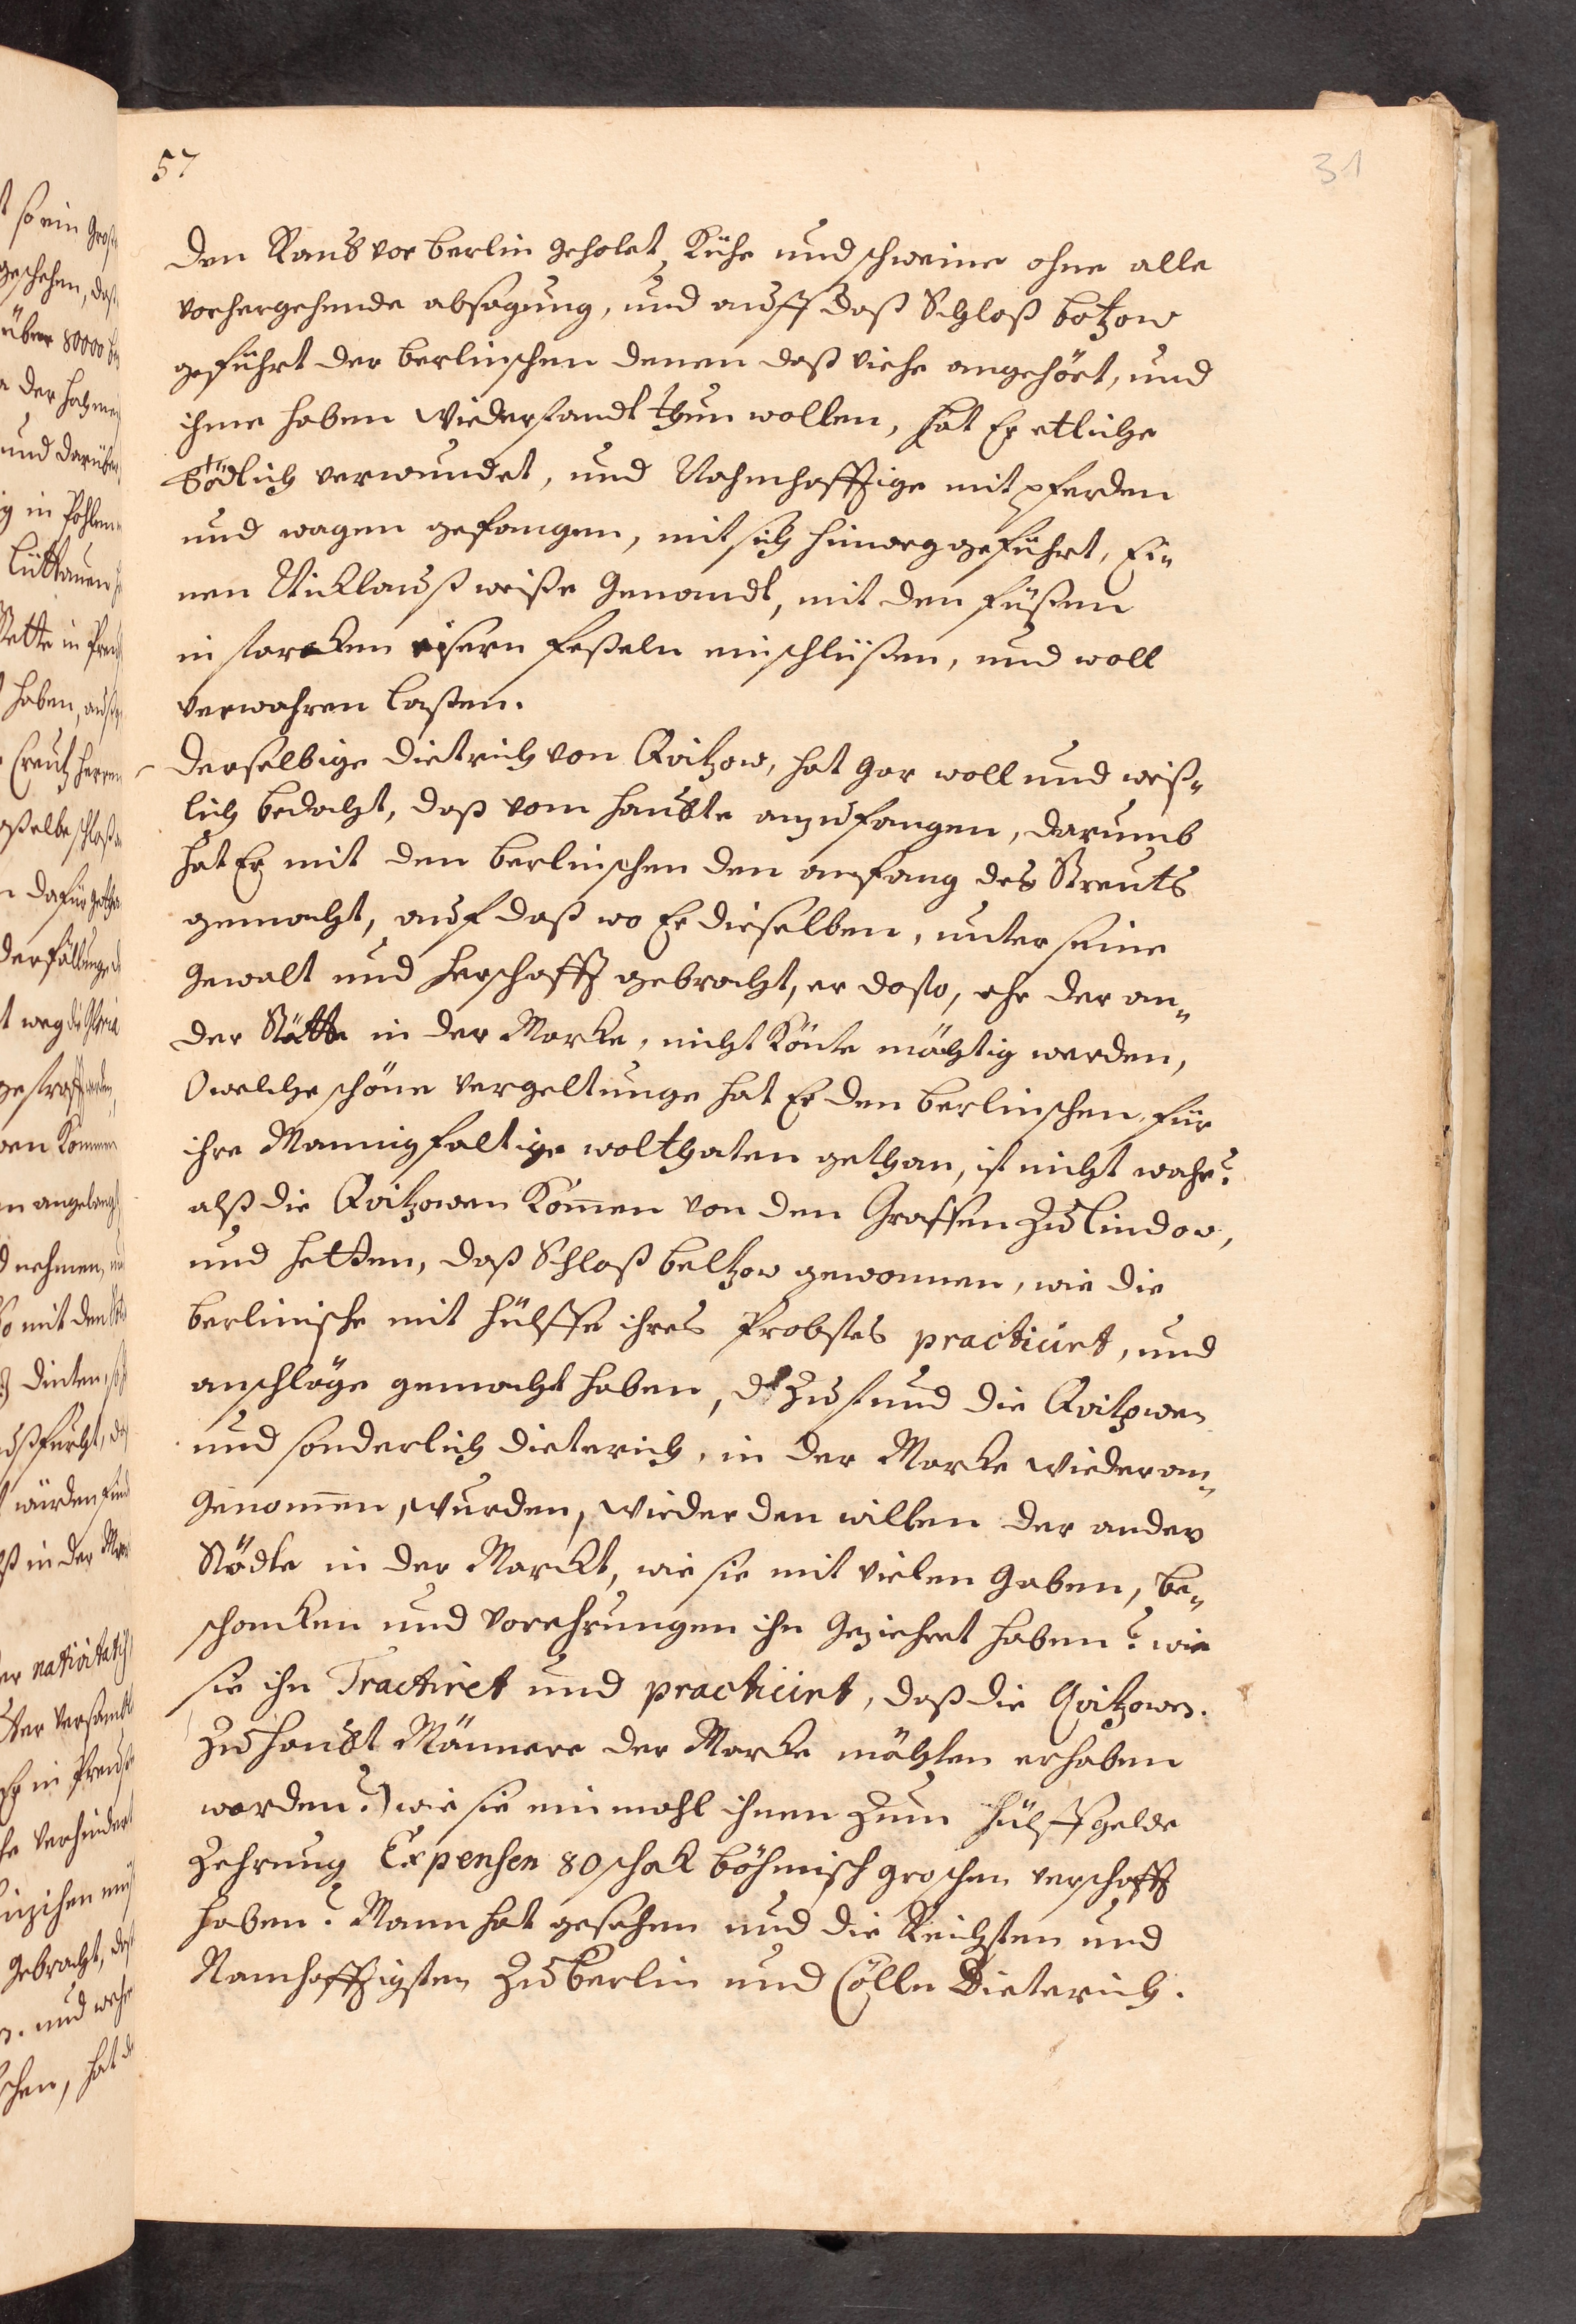 57
31
den Raub vor berlin geholet, Kühe und schweine ohne alle
vorhergehende absagung, und auff daß Schloß botzow
geführt der berlinschen denen daß viehe angehört, und
ihme haben wiederstandt thun wollen, hat Er etliche
tödlich verwundet, und Nahmhafftige mit pferden
und wagen gefangen, mit sich hinweg geführt, Ei„
nen Nicklauß weiße Genandt, mit den füßen
in starcken eisern feßeln einschlüßen, und woll
verwahren laßen.
derselbige dietrich von Qvitzow, hat gar woll und weiß„
lich bedacht, daß vom haubte anzufangen, darumb
hat Er mit den berlinschen den anfang des Streuts
gemacht, auf daß wo Er dieselben, unter seine
Gewalt und herschafft gebracht, er dasto, ehe der an„
der Stätte in der Marcke, nicht könte mächtig werden,
O welche schöne vergeltunge hat Er den berlinschen, für
ihre Mannigfaltige wolthaten gethan, ist nicht wahr?
alß die Qvitzowen Kom̃en von den Graffen zu Lindow,
und hetten, daß Schloß beltzow gewonnen, wie die
berlinische mit hülffe ihres Probstes practicirt, und
anschläge gemacht haben, d zustund die Qvitzowen
und sonderlich dieterich, in der Marcke wieder an„
Genom̃en, wurden, wieder den willen der ander
Städte in der Marckt, wie sie mit vielen Gaben, be„
schencken und vorehrungen ihn geziehret haben? wie
sie ihn Tractiret und practicirt, daß die Qvitzowen.
zu haubt Männere der Marcke möchten erhaben
worden?) wie sie einmahl ihnen zum hülffgelde
Zehrung Expensen 80 schok böhmisch groschen verschafft
haben? Mann hat gesehen und die Reichsten und
Namhafftigsten zu berlin und Cölln Dieterich.